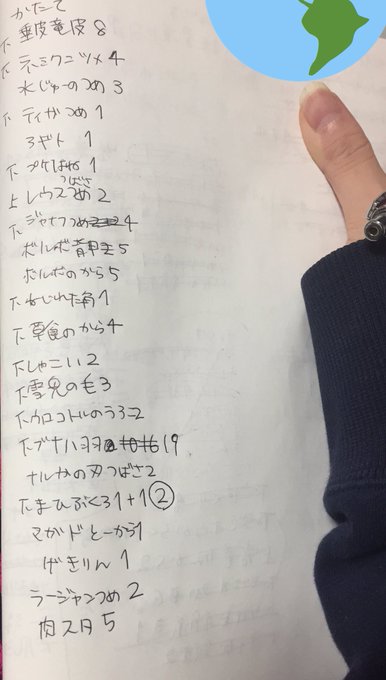 かたて
下 垂皮竜皮 8
下 ネミクニツメ 4
水じゅーのつめ 3
下 ティガつめ 1
3ギト 1
下 プケはね 1
つばさ
上 レウスつめ 2
下 ジャナフつめ 4
ボルボ背甲 5
ボルボのから 5
下 ねじれた角 1
下 草食のから 4
下 しゃこい 2
下 雪鬼の毛 3
下 ウロコトルのうろこ 2
下 ブナハ羽 19
ナルガの刃つばさ 2
下 まひぶくろ 1+1 ②
マガド とーから 1
げきりん 1
ラージャンつめ 2
肉スタ 5